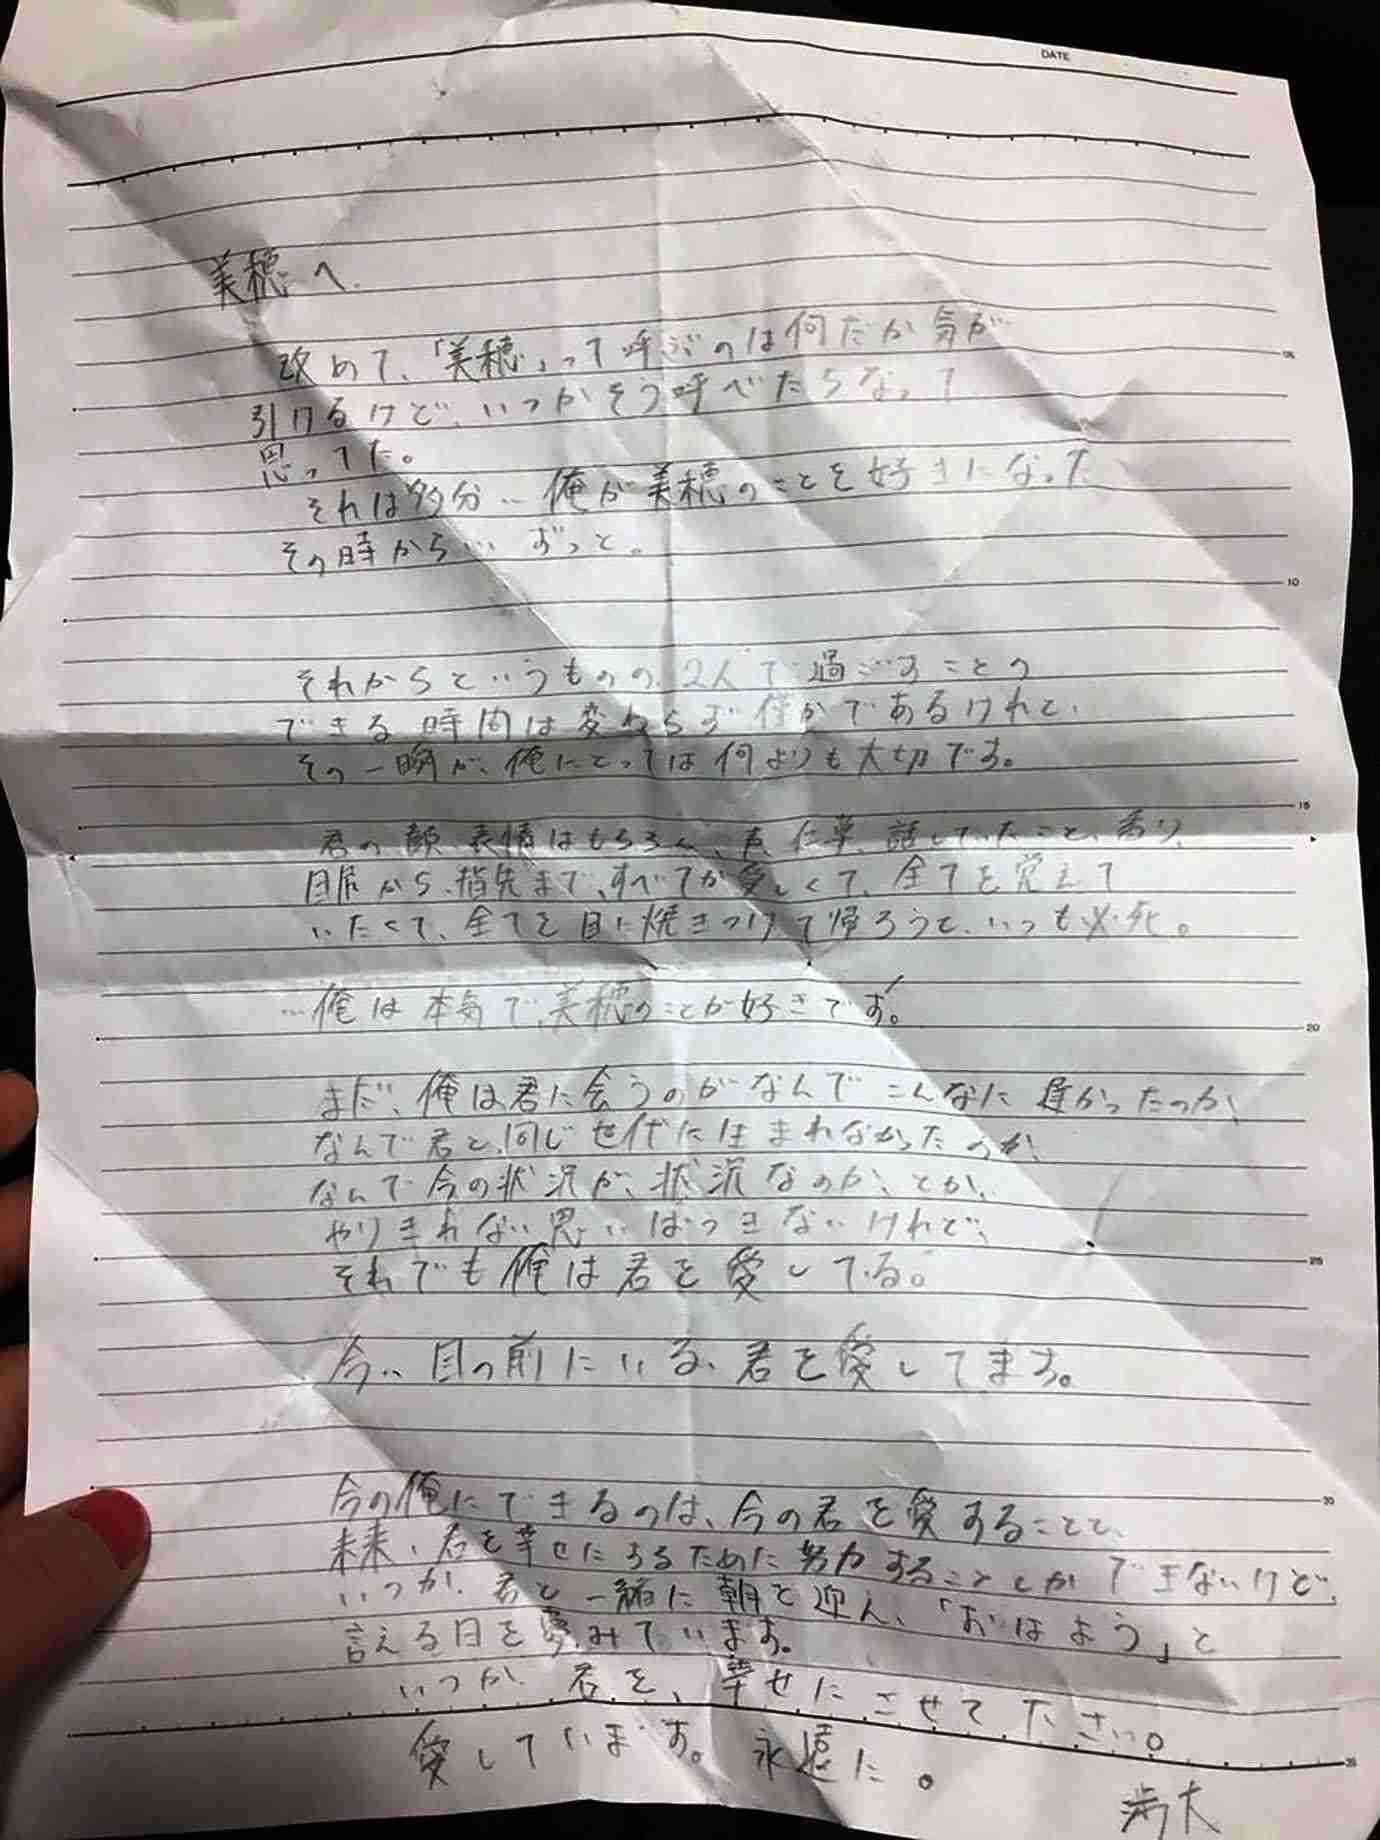 DATE
美穂へ.
改めて、「美穂」って呼ぶのは何だか気が
引けるけど、いつかそう呼べたらなって
思ってた。
それは多分…俺が美穂のことを好きになった
その時から… ずっと。
05
10
それからというものの、2人で過ごすことの
できる時間は変わらず僅かであるけれど、
その一瞬が、俺にとっては何よりも大切です。
15
君の顔、表情はもちろん、声、仕草、話していたこと、香り、
目尻から、指先まで、すべてが愛しくて、全てを覚えて
いたくて、全てを目に焼きつけて帰ろうと、いつも必死。
…俺は本気で、美穂のことが好きです。
20
まだ、俺は君に会うのがなんでこんなに遅かったのか、
なんで君と、同じ世代に生まれなかったのか、
なんで今の状況が、状況なのか、とか、
やりきれない思いはつきないけれど、
それでも俺は君を愛してる。
25
今… 目の前にいる、君を愛してます。
今の俺にできるのは、今の君を愛することと、
30
未来、君を幸せにするために努力することしかできないけど、
いつか、君と一緒に朝を迎え、「おはよう」と
言える日を夢みています。
いつか、君を、幸せにさせてださい。
35
愛しています。 永遠に。